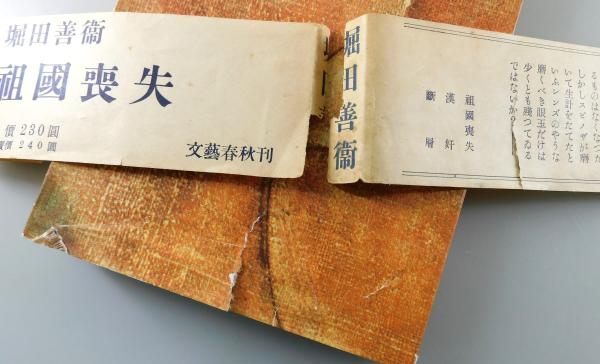 堀田善衞
祖國喪失
價230圓
價240圓
文藝春秋刊
堀田善衞
祖國喪失
漢奸
斷層
るものはなくなつた
しかしスピノザが磨
いて生計をたてたと
いふレンズのやうな
磨くべき眼玉だけは
少くとも殘つてゐる
ではないか?